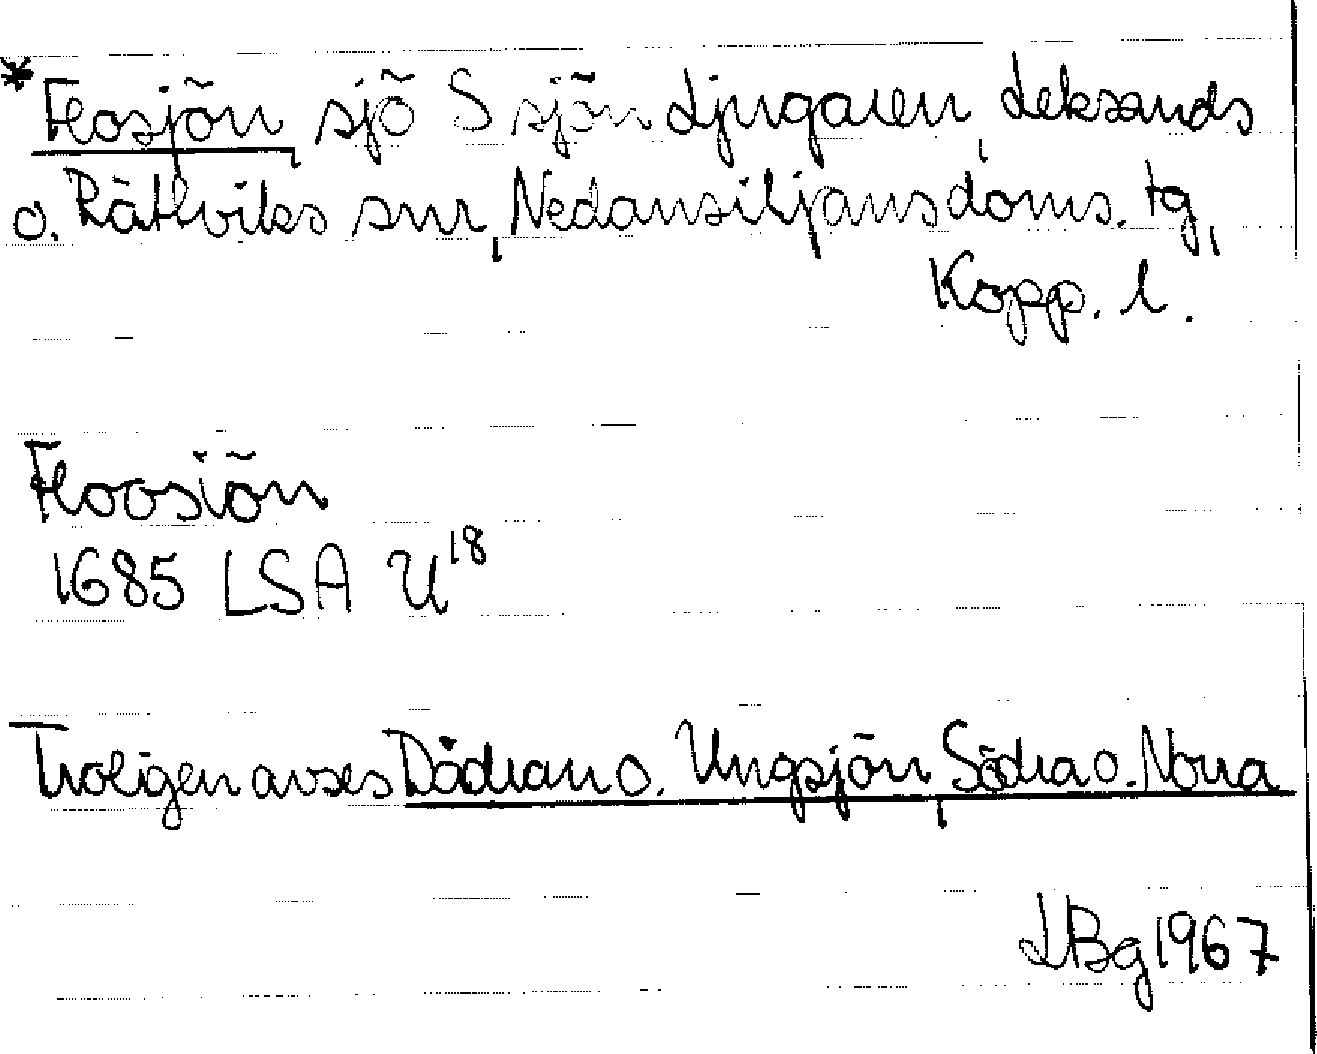 *Flosjön, sjö S sjön Ljugaren, Leksands
o. Rättviks snr, Nedansiljans doms. tg,
Kopp. l.
Floosiön
1685 LSA U18
Troligen avses Dådran o. Ungsjön, Södra o. Norra
LBg 1967